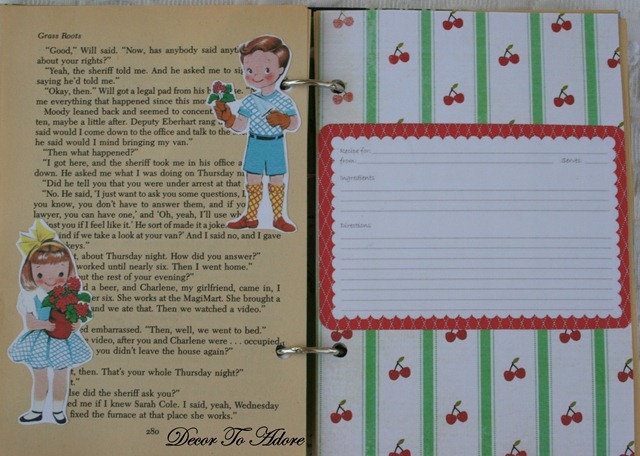 Grass Roots
"Good," Will said. "Now, has anybody said
about your rights?"
"Yeah, the sheriff told me. And he asked me to
saying he'd told me."
"Okay, then." Will got a legal pad from his
me everything that happened since this
Moody leaned back and seemed to
ten, maybe a little after. Deputy Eberhart rang
said would I come down to the office and talk to the
he said would I mind bringing my van."
"Then what happened?"
"I got here, and the sheriff took me in his office
down. He asked me what I was doing on Thursday
"Did he tell you that you were under arrest at that
"No. He said, 'I just want to ask you some questions,
you know, you don't have to answer them, and if
lawyer, you can have one,' and 'Oh, yeah, I'll use
you if I feel like it.' He sort of made it a joke.
if we take a look at your van?' And I said no, and I gave
keys."
about Thursday night. How did you answer?"
worked until nearly six. Then I went home."
the rest of your evening?"
a beer, and Charlene, my girlfriend, came in, I
six. She works at the MagiMart. She brought a
and we ate that. Then we watched a video."
embarrassed. "Then, well, we went to bed."
video, after you and Charlene were . . . occupied,
you didn't leave the house again?"
then. That's your whole Thursday night?"
else did the sheriff ask you?"
me if I knew Sarah Cole. I said, yeah, Wednesday
fixed the furnace at that place she works."
280
Decor To Adore
Recipe for:
from: Serves:
Ingredients:
Directions: